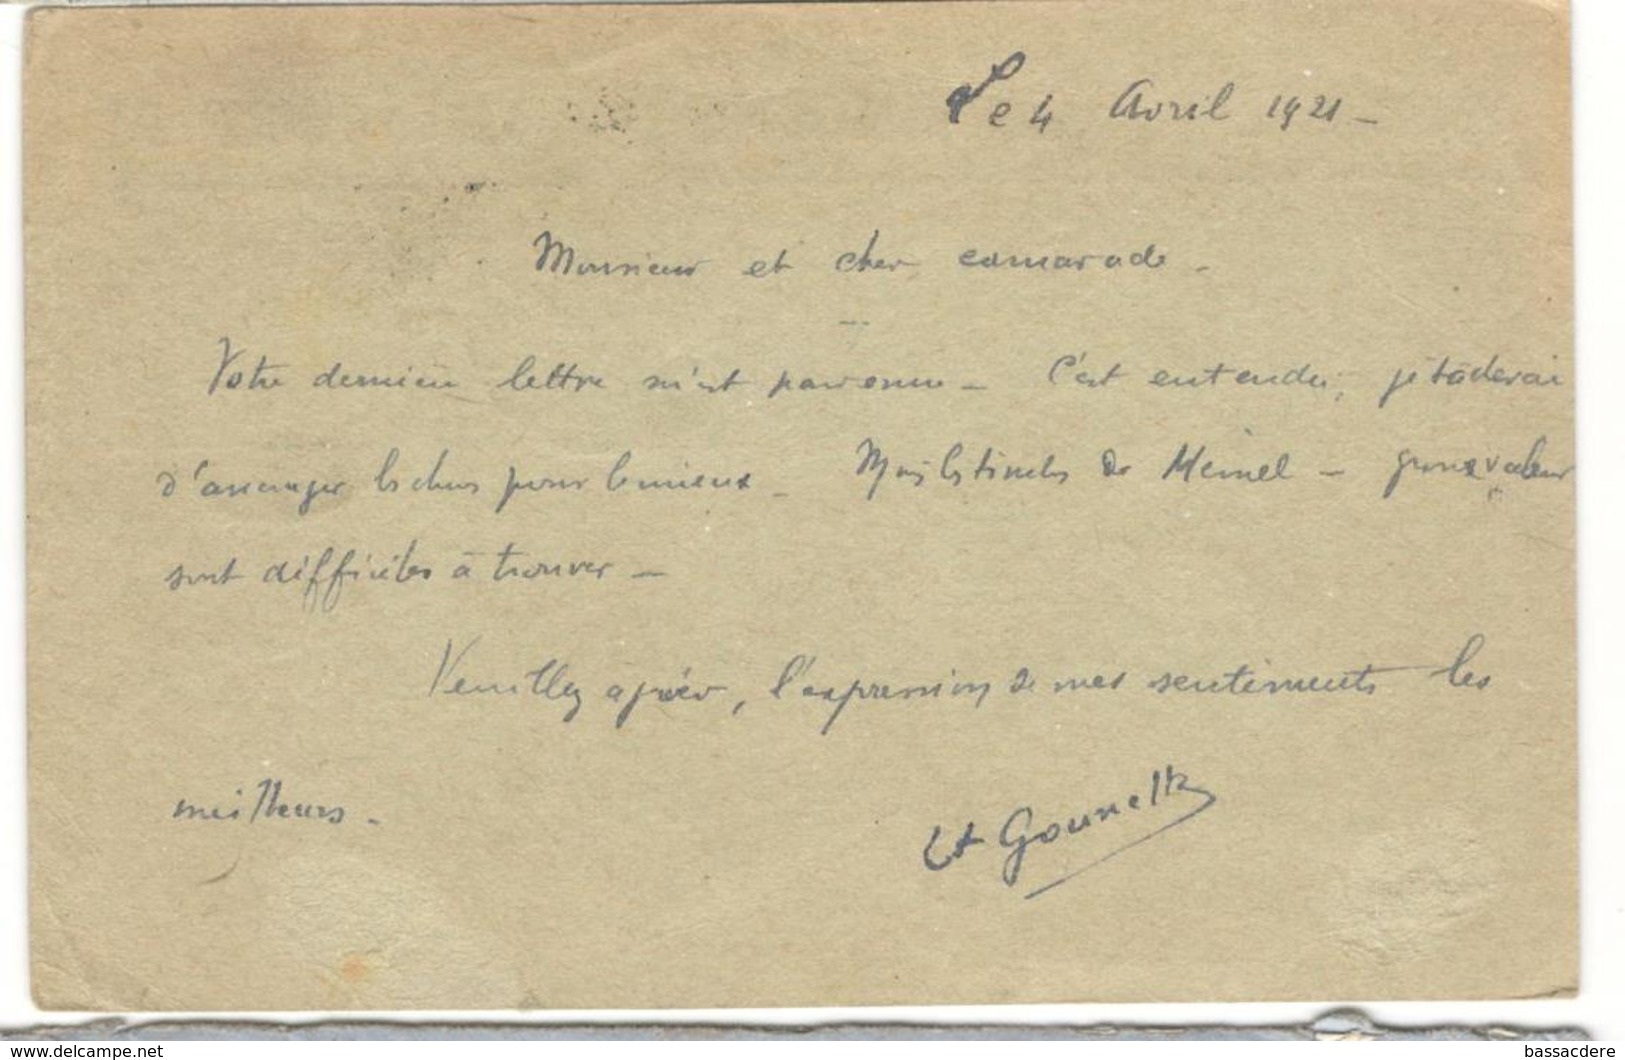 Le 4 Avril 1921 -
Monsieur et cher camarade -
Votre dernière lettre m'est parvenue - C'est entendu, je tâcherai
d'arranger les choses pour le mieux - Mais les timbres de Memel - grosse valeur
sont difficiles à trouver -
Veuillez agréer, l'expression de mes sentiments les
meilleurs -
Lt
www.delcampe.net
bassacdere